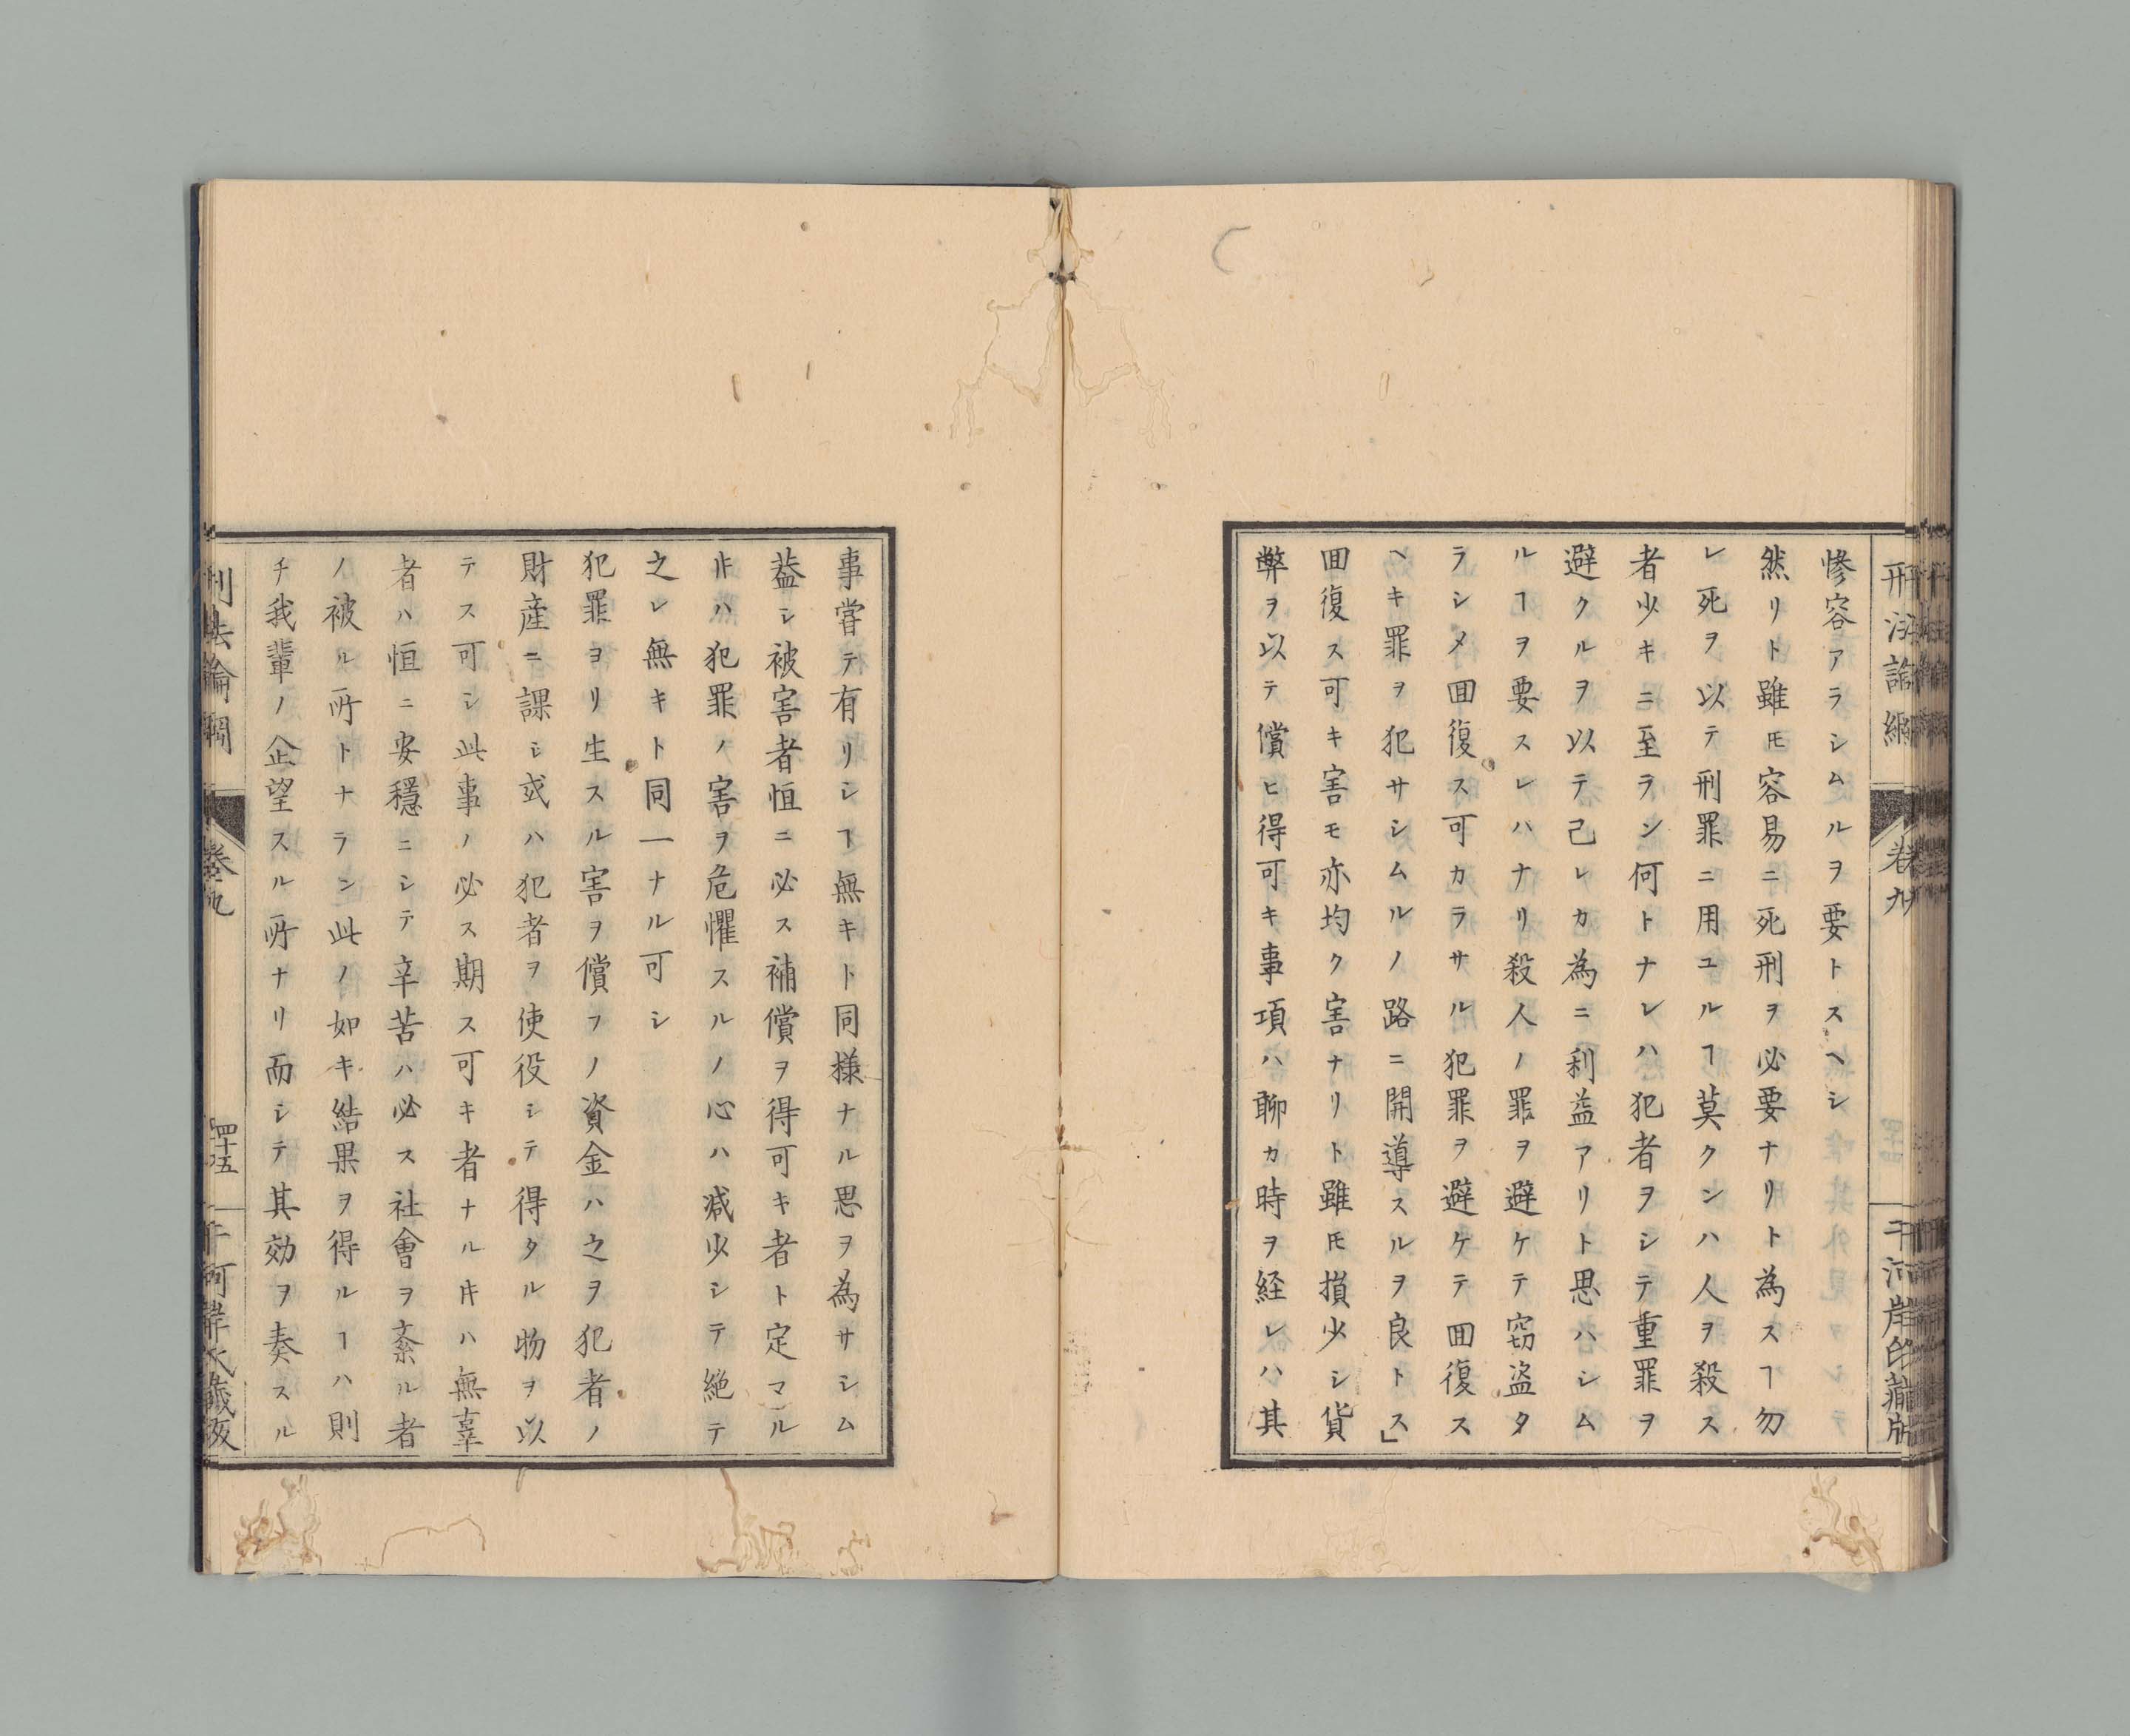 慘容アラシムルヲ要トスヘシ
然リト雖𪜈容易ニ死刑ヲ必要ナリト為スヿ勿
レ死ヲ以テ刑罪ニ用ユルヿ莫クンハ人ヲ殺ス
者少キニ至ラン何トナレハ犯者ヲシテ重罪ヲ
避クルヲ以テ己レカ為ニ利益アリト思ハシム
ルヿヲ要スレハナリ殺人ノ罪ヲ避ケテ窃盗タ
ラシメ囬復ス可カラサル犯罪ヲ避ケテ囬復ス
ヘキ罪ヲ犯サシムルノ路ニ開導スルヲ良トス」
囬復ス可キ害モ亦均ク害ナリト雖𪜈損少シ貨
幣ヲ以テ償ヒ得可キ事項ハ聊カ時ヲ経レハ其
刑法論綱
卷九
事甞テ有リシヿ無キト同様ナル思ヲ為サシム
葢シ被害者恒ニ必ス補償ヲ得可キ者ト定マル
𪜈ハ犯罪ノ害ヲ危懼スルノ心ハ減少シテ絶テ
之レ無キト同一ナル可シ
犯罪ヨリ生スル害ヲ償フノ資金ハ之ヲ犯者ノ
財産ニ課シ或ハ犯者ヲ使役シテ得タル物ヲ以
テス可シ此事ノ必ス期ス可キ者ナル𪜈ハ無辜
者ハ恒ニ安穏ニシテ辛苦ハ必ス社會ヲ紊ル者
ノ被ル所トナラン此ノ如キ結果ヲ得ルヿハ則
チ我輩ノ企望スル所ナリ而シテ其効ヲ奏スル
刑法論綱
卷九
四十五